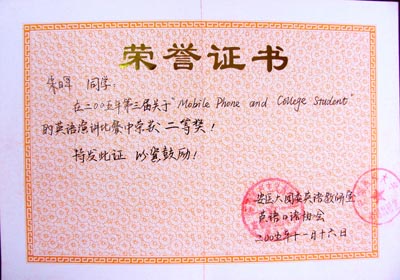 荣誉证书
同学:
在二00五年第三届关于"Mobile Phone and College Student"
的英语演讲比赛中荣获 二等奖!
特发此证 以资鼓励!
安医大团委英语教研室
英语口语协会
二00五年十一月十六日